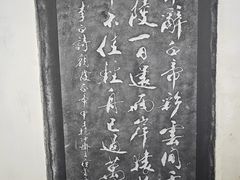 辭白帝彩雲間
陵一日還兩岸猿
不住輕舟已過萬
李白詩